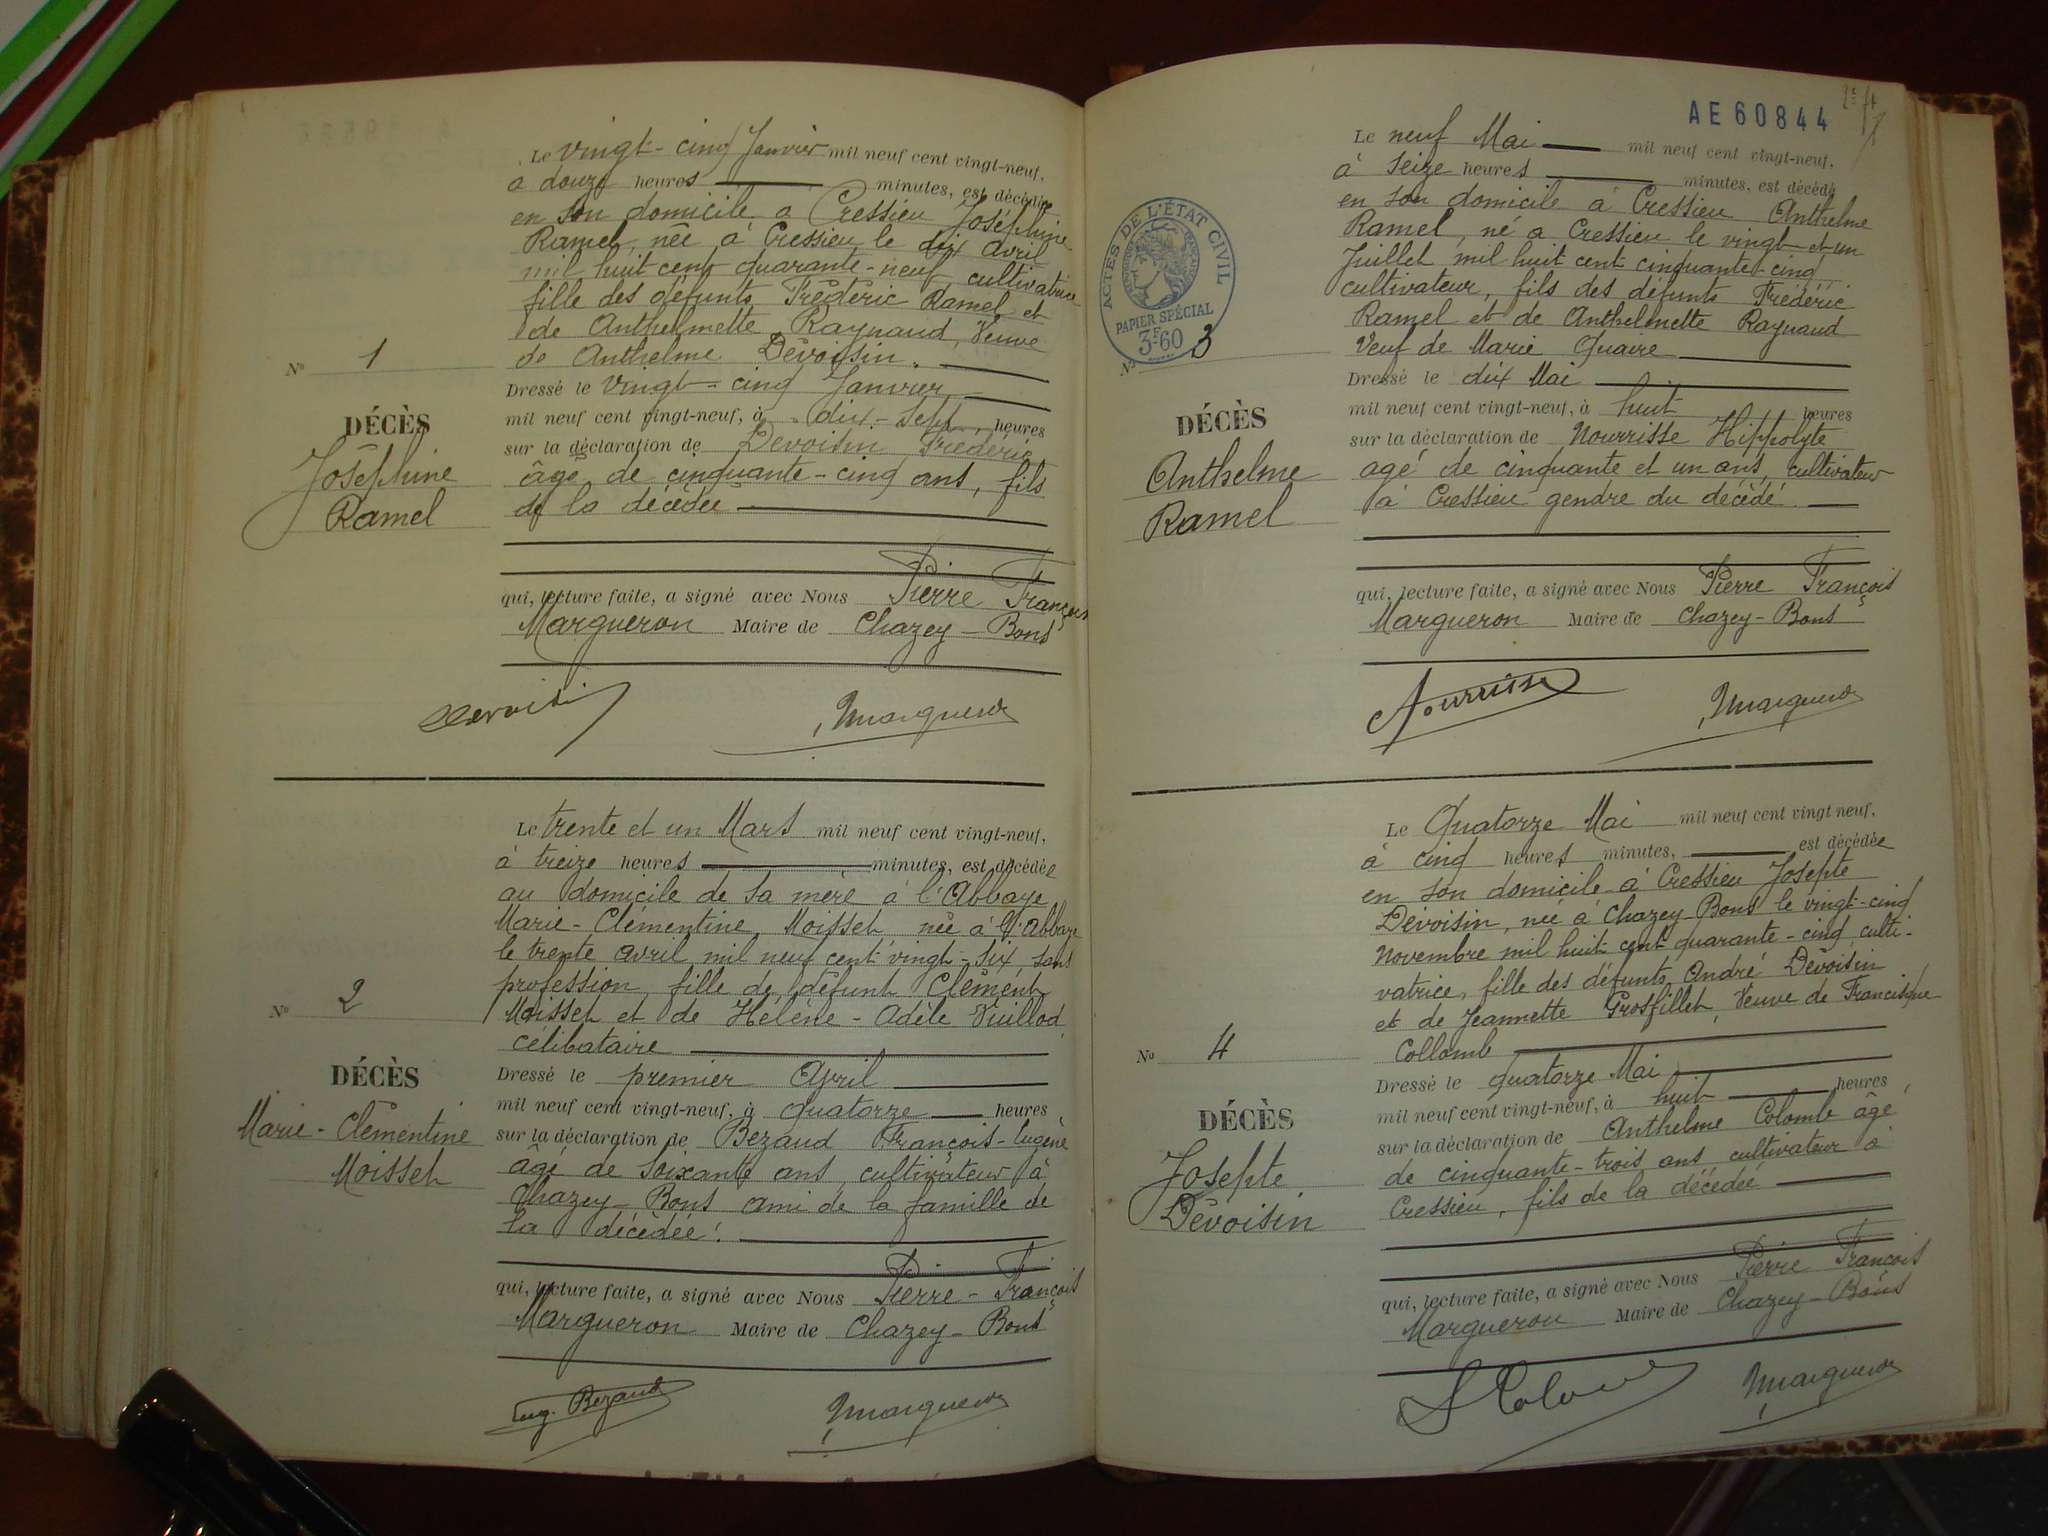 Le vingt-cinq Janvier mil neuf cent vingt-neuf,
à douze heures minutes, est décédée
en son domicile a Cressieu Joséphine
Ramel, née à Cressieu le dix avril
mil huit cent quarante-neuf, cultivatrice
fille des défunts Frédéric Ramel et
de Anthelmette Raynaud, Veuve
de Anthelme Dévoisin.
Dressé le vingt-cinq Janvier
mil neuf cent vingt-neuf, à dix-sept heures
sur la déclaration de Devoisin Frédéric
âgé de cinquante-cinq ans, fils
de la décédée
No 1
DÉCÈS
Joséphine
Ramel
qui, lecture faite, a signé avec Nous Pierre François
Margueron Maire de Chazey-Bons
Devoisin
Margueron
Le trente et un Mars mil neuf cent vingt-neuf,
à treize heures minutes, est décédée
au domicile de sa mère à l'Abbaye
Marie-Clémentine Moisset née à l'Abbaye
le trente avril mil neuf cent vingt-six, sans
profession, fille de défunt Clément
Moisset et de Hélène-Adèle Vuillod
célibataire
Dressé le premier Avril
mil neuf cent vingt-neuf, à quatorze heures
sur la déclaration de Bezaud François-Eugène
âgé de soixante ans, cultivateur à
Chazey-Bons ami de la famille de
la décédée.
No 2
DÉCÈS
Marie-Clémentine
Moisset
qui, lecture faite, a signé avec Nous Pierre-François
Margueron Maire de Chazey-Bons
Eug. Bezaud
Margueron
AE 60844
ACTES DE L'ÉTAT CIVIL
PAPIER SPÉCIAL
3F60
Le neuf Mai mil neuf cent vingt-neuf,
à seize heures minutes, est décédé
en son domicile à Cressieu Anthelme
Ramel, né a Cressieu le vingt et un
Juillet mil huit cent cinquante-cinq
cultivateur, fils des défunts Frédéric
Ramel et de Anthelmette Raynaud
Veuf de Marie Quaire
Dressé le dix Mai
mil neuf cent vingt-neuf, à huit heures
sur la déclaration de Nourrisse Hippolyte
agé de cinquante et un ans, cultivateur
à Cressieu gendre du décédé.
No 3
DÉCÈS
Anthelme
Ramel
qui, lecture faite, a signé avec Nous Pierre François
Margueron Maire de Chazey-Bons
Nourrisse
Margueron
Le Quatorze Mai mil neuf cent vingt neuf,
à cinq heures minutes, est décédée
en son domicile à Cressieu Josepte
Dévoisin, née à Chazey-Bons le vingt-cinq
Novembre mil huit cent quarante-cinq, culti-
vatrice, fille des défunts André Dévoisin
et de Jeannette Grosfillet, Veuve de Francisque
Collomb
Dressé le quatorze Mai
mil neuf cent vingt-neuf, à huit heures
sur la déclaration de Anthelme Colomb âgé
de cinquante-trois ans cultivateur à
Cressieu, fils de la décédée
No 4
DÉCÈS
Josepte
Dévoisin
qui, lecture faite, a signé avec Nous Pierre François
Margueron Maire de Chazey-Bons
Margueron